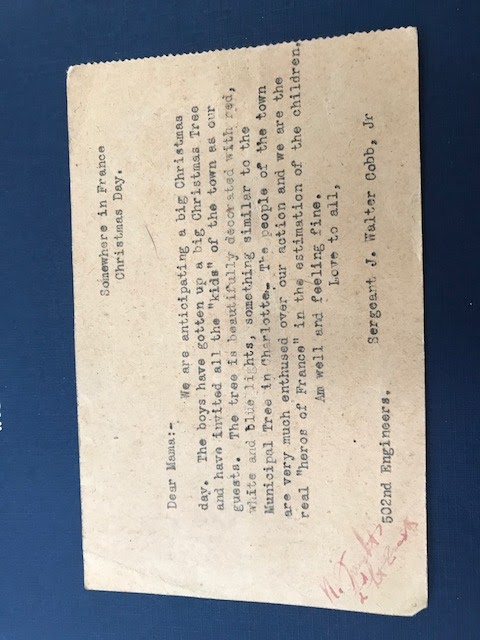 Somewhere in France
Christmas Day.
Dear Mama:-
We are anticipating a big Christmas
day. The boys have gotten up a big Christmas Tree
and have invited all the "kids" of the town as our
guests. The tree is beautifully decorated with red,
white and blue lights, something similar to the
Municipal Tree in Charlotte. The people of the town
are very much enthused over our action and we are the
real "heros of France" in the estimation of the children.
Am well and feeling fine.
Love to all,
Sergeant J. Walter Cobb, Jr
502nd Engineers.